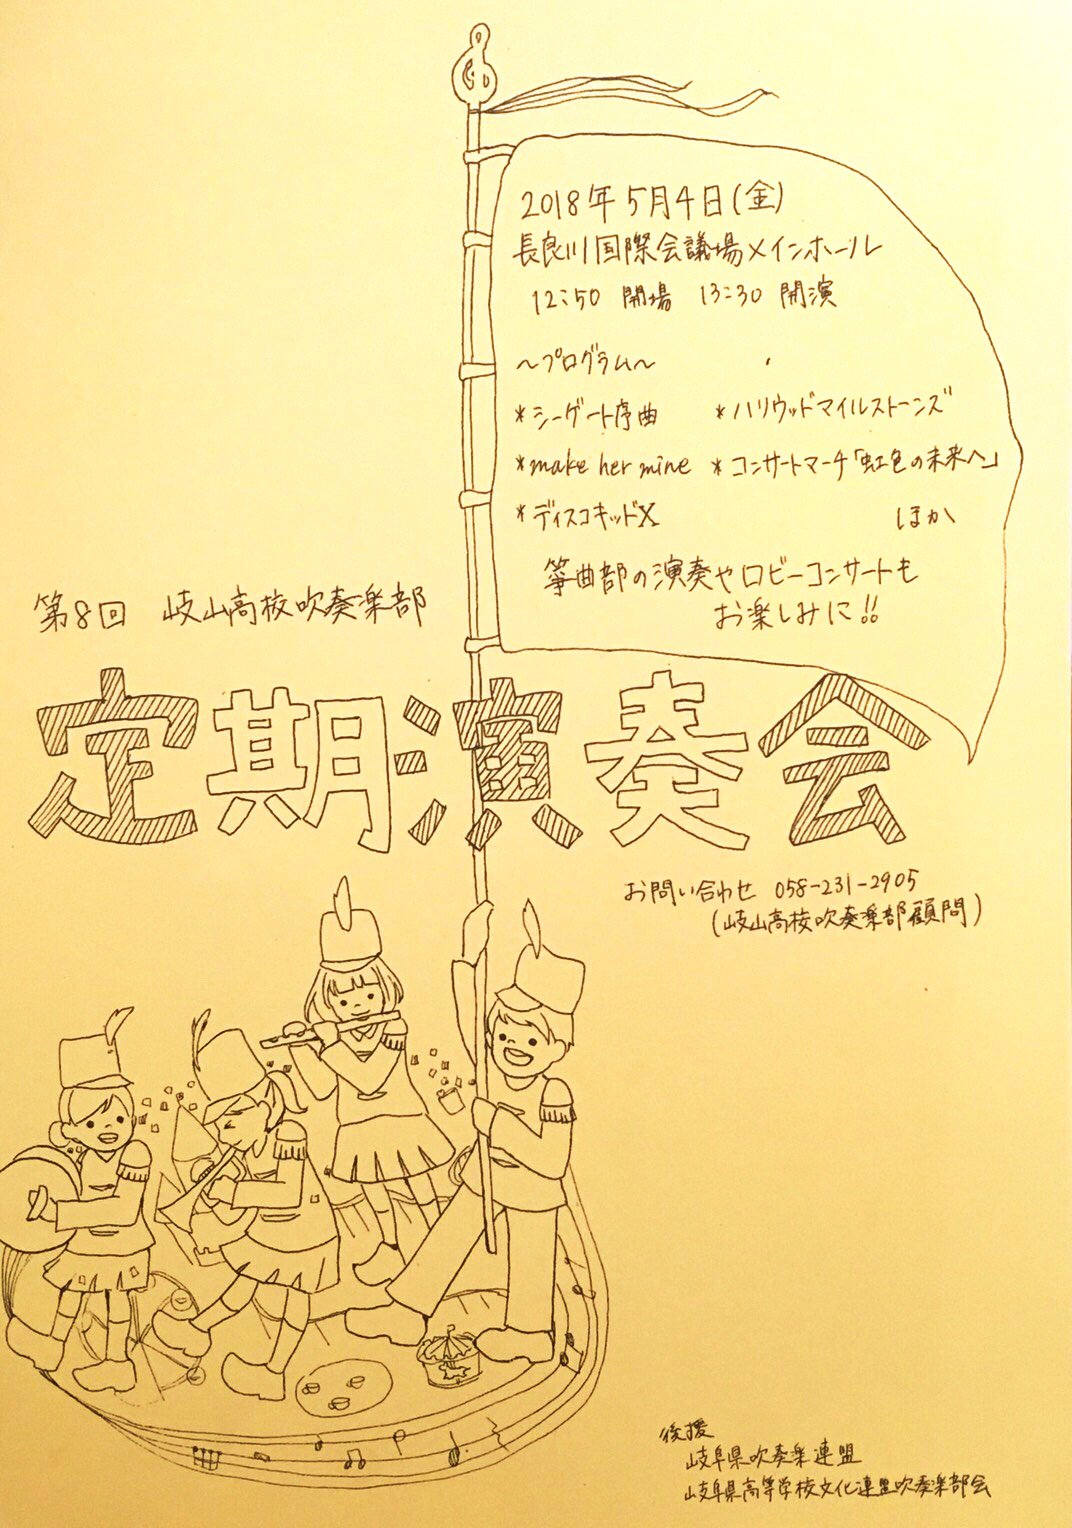 2018年5月4日(金)
長良川国際会議場メインホール
12:50 開場 13:30 開演
〜プログラム〜
*シーゲート序曲 *ハリウッドマイルストーンズ
*make her mine *コンサートマーチ「虹色の未来へ」
*ディスコキッドX
ほか
箏曲部の演奏やロビーコンサートも
お楽しみに!!
第8回 岐山高校吹奏楽部
定期演奏会
お問い合わせ 058-231-2905
(岐山高校吹奏楽部顧問)
後援
岐阜県吹奏楽連盟
岐阜県高等学校文化連盟吹奏楽部会